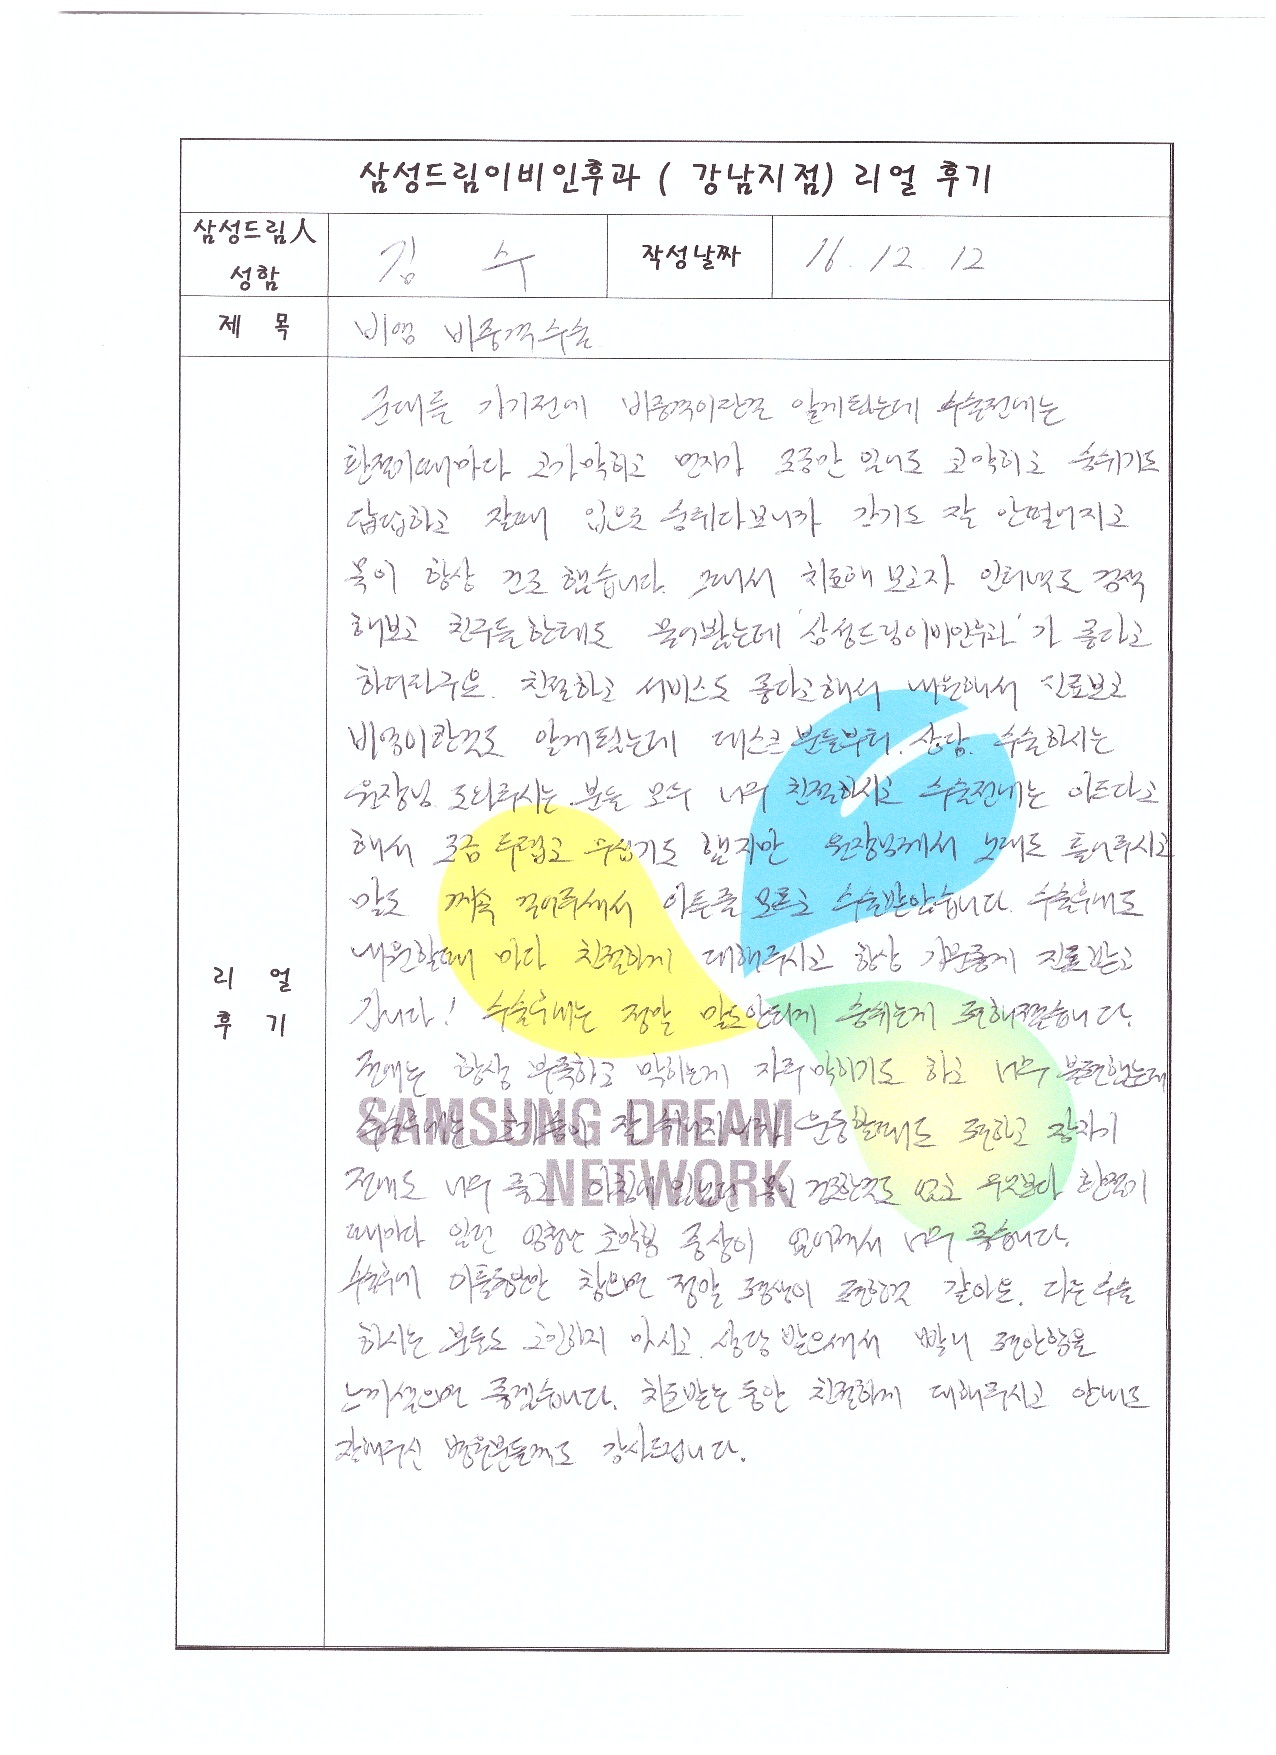 삼성드림이비인후과 ( 강남지점) 리얼 후기
삼성드림人
성함
김 수
작성날짜
16. 12. 12
제 목
비염 비중격수술
군대를 가기전에 비중격이란걸 알게됬는데 수술전에는
환절기때마다 코가막히고 먼지가 조금만 있어도 코막히고 숨쉬기도
답답하고 잘때 입으로 숨쉬다보니까 감기도 잘 안떨어지고
목이 항상 건조 했습니다. 그래서 치료해 보고자 인터넷도 검색
해보고 친구들한테도 물어봤는데 '삼성드림이비인후과' 가 좋다고
하더라구요. 친절하고 서비스도 좋다고해서 내원해서 진료보고
비염이란것도 알게됬는데 데스크 분들부터. 상담. 수술하시는
원장님 도와주시는 분들 모두 너무 친절하시고 수술전에는 아프다고
해서 조금 두렵고 무섭기도 했지만 원장님께서 노래도 틀어주시고
말도 계속 걸어주셔서 아픈줄 모르고 수술받았습니다. 수술후에도
내원할때 마다 친절하게 대해주시고 항상 기분좋게 진료받고
갑니다! 수술후에는 정말 말도안되게 숨쉬는게 편해졌습니다.
전에는 항상 부족하고 막히는게 자주막히기도 하고 너무 불편했는데
수술후에는 잘 운동할때도 편하고 잠자기
전에도 너무 좋고 아침에 일어나면 목이 건조한것도 없고 무엇보다 환절기
때마다 일던 엄청난 코막힘 증상이 없어져서 너무 좋습니다.
수술후에 이틀동안만 참으면 정말 평생이 편한것 같아요. 다른 수술
하시는 분들도 고민하지 마시고 상담 받으셔서 빨리 편안함을
느끼셨으면 좋겠습니다. 치료받는 동안 친절하게 대해주시고 안내도
잘해주신 병원분들께도 감사드립니다.
리 얼
후 기
SAMSUNG DREAM
NETWORK